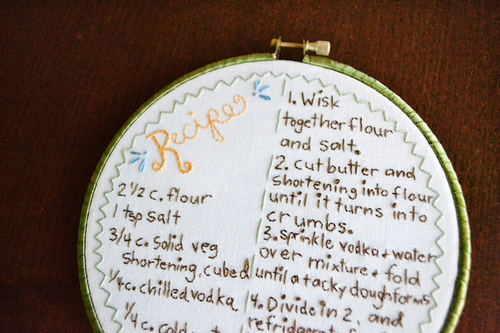 Recipe
2 ½ c. flour
1 tsp salt
3/4 c. solid veg
shortening, cubed
¼ c. chilled vodka
¼ c. cold
1. Wisk
together flour
and salt.
2. cut butter and
shortening into flour
until it turns into
crumbs.
3. sprinkle vodka + water
over mixture + fold
until a tacky dough forms.
4. Divide in 2, and
refrigerate